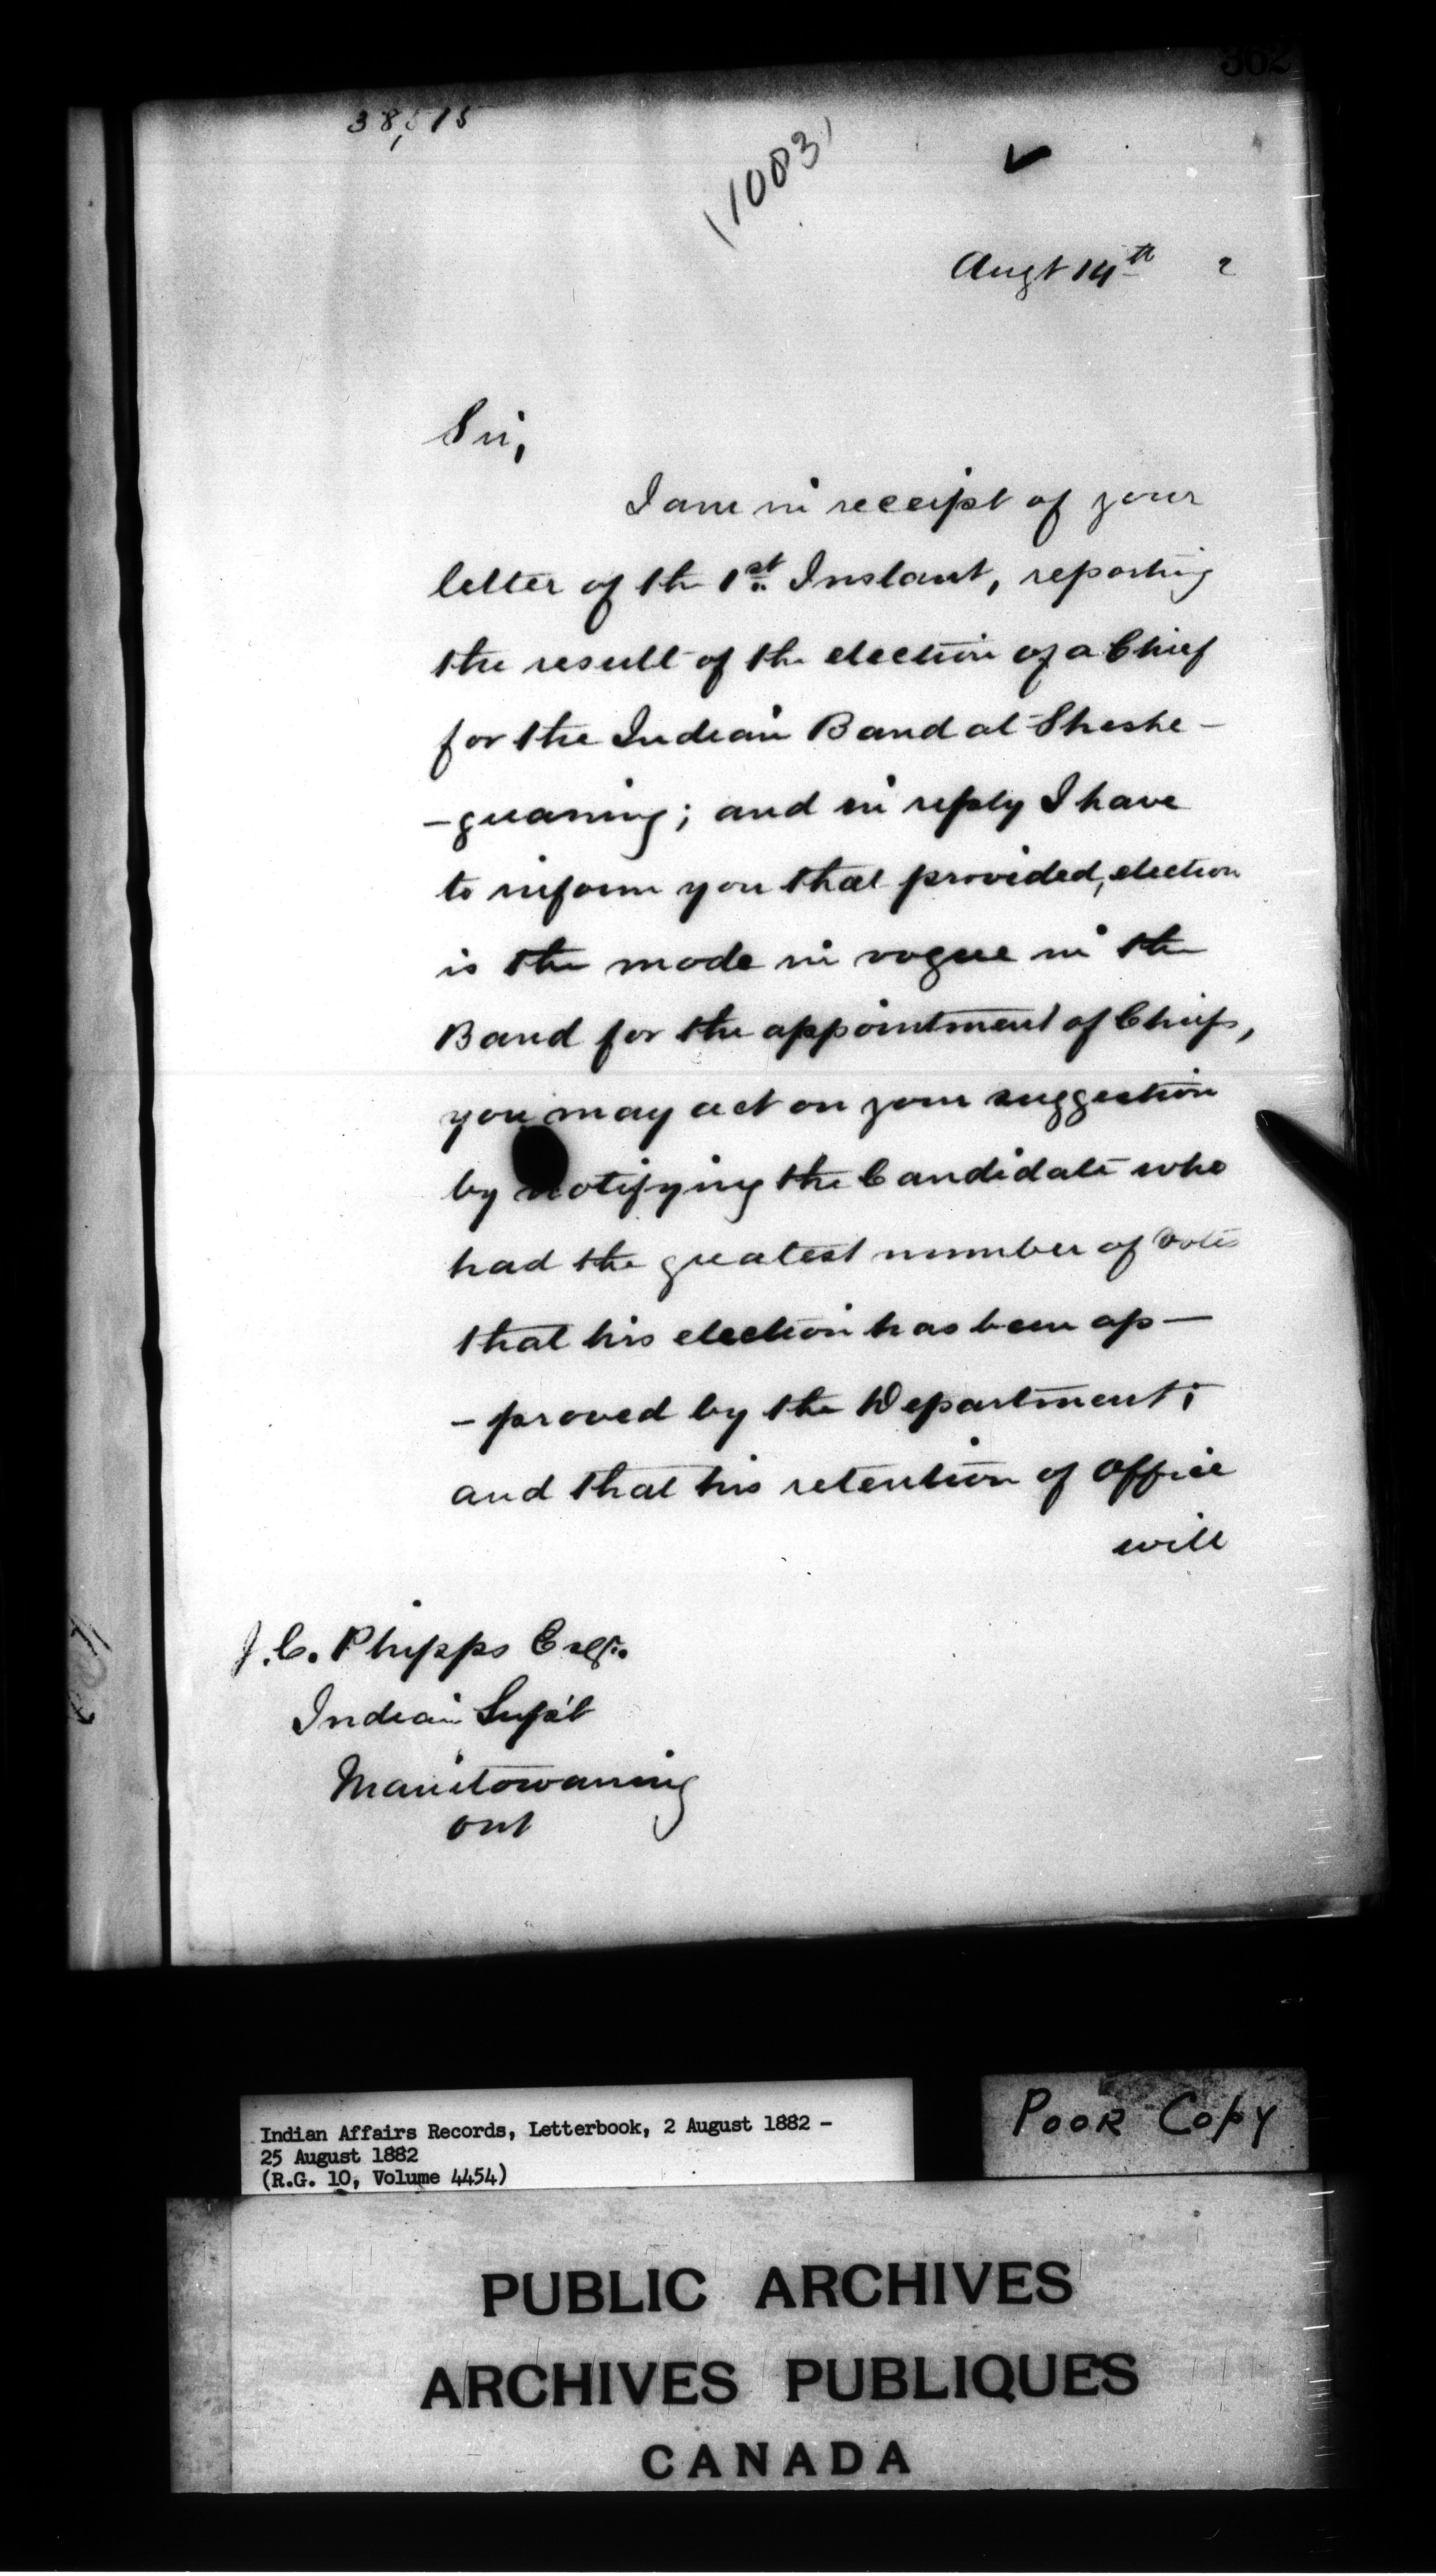 362
38,515
(1083)
Augt 14th 2
Sir,
I am in receipt of your
letter of the 1st Instant, reporting
the result of the election of a Chief
for the Indian Band at Sheshe-
-guaning; and in reply I have
to inform you that provided, election
is the mode in vogue in the
Band for the appointment of Chiefs,
you may act on your suggestion
by notifying the Candidate who
had the greatest number of votes
that his election has been ap-
-proved by the Department;
and that his retention of Office
will
J.C. Phipps Esqr.
Indian Sup't
Manitowaning
Ont
Indian Affairs Records, Letterbook, 2 August 1882 -
25 August 1882
(R.G. 10, Volume 4454)
Poor Copy
PUBLIC ARCHIVES
ARCHIVES PUBLIQUES
CANADA